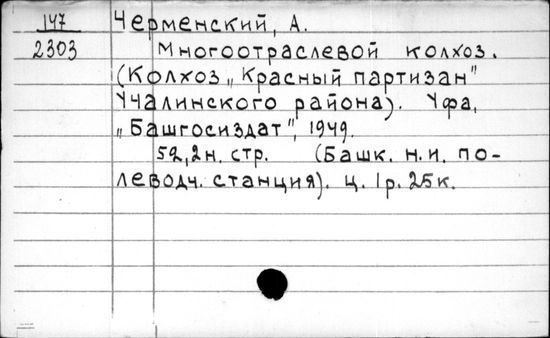 147 Черменский, А.
2303 Многоотраслевой колхоз.
(Колхоз „Красный партизан"
Учалинского района). Уфа,
„Башгосиздат", 1949.
52,2н. стр. (Башк. н.и. по-
леводч. станция). Ц. 1р. 25к.